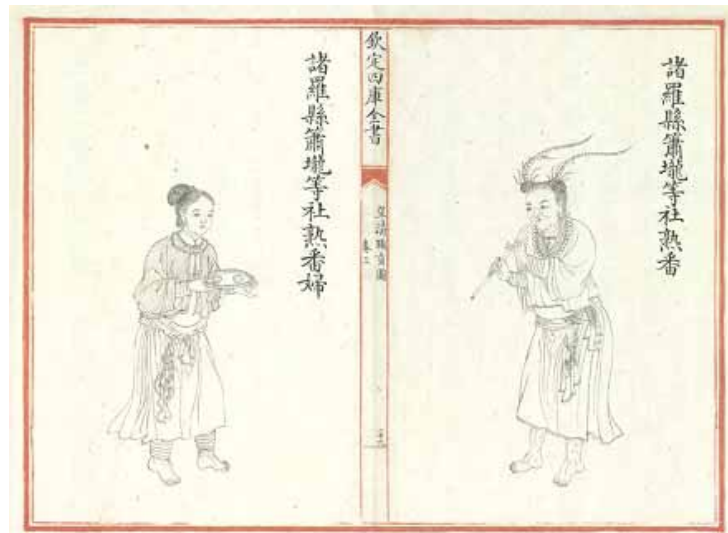 諸羅縣簫壠等社熟番
欽定四庫全書
皇清職貢圖
卷三
諸羅縣簫壠等社熟番婦